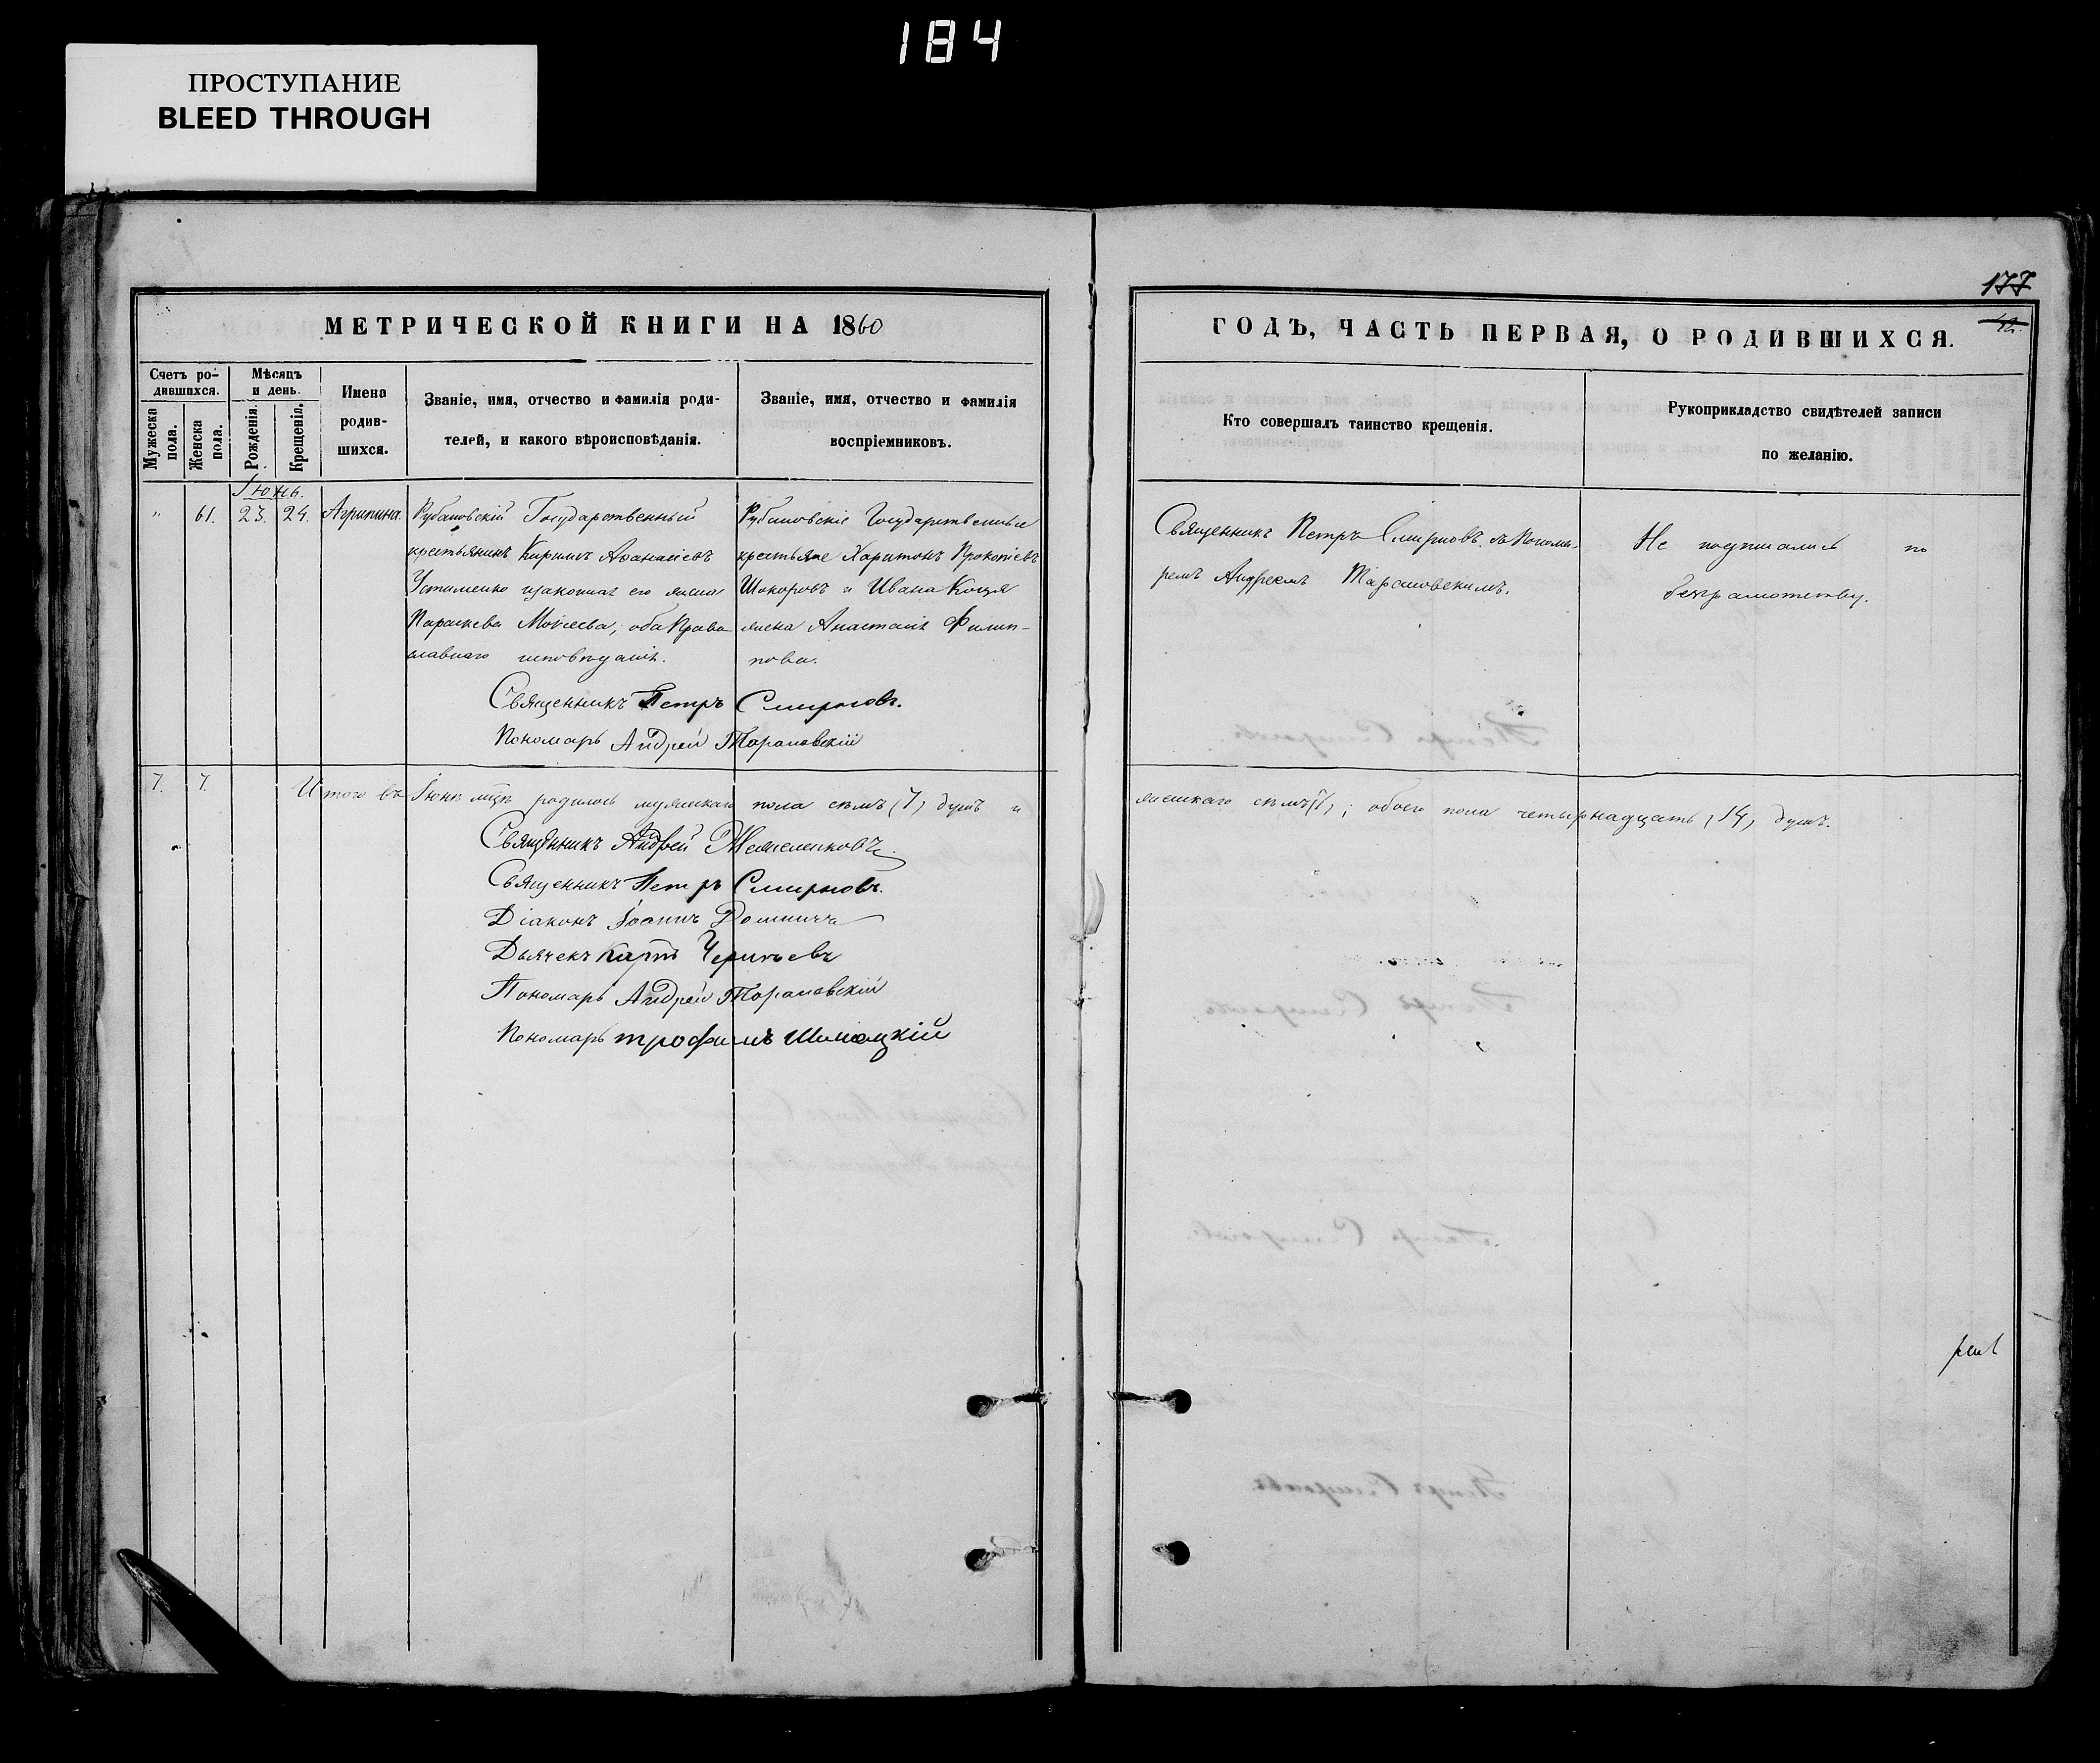 184
ПРОСТУПАНИЕ
BLEED THROUGH
177
42.
МЕТРИЧЕСКОЙ КНИГИ НА 1860
ГОДЪ, ЧАСТЬ ПЕРВАЯ, О РОДИВШИХСЯ.
Счетъ ро-
дившихся.
Мужеска пола.
Женска пола.
Мѣсяцъ
и день.
Рожденія.
Крещенія.
Имена
родив-
шихся.
Званіе, имя, отчество и фамилія роди-
телей, и какого вѣроисповѣданія.
Званіе, имя, отчество и фамилія
воспріемниковъ.
Кто совершалъ таинство крещенія.
Рукоприкладство свидѣтелей записи
по желанію.
Іюнь.
" 61. 23. 24. Агрипина.
Рубановскій Государственный
крестьянинъ Кирилъ Аѳанасіевъ
Устименко изаконная его жена
Параскева Моѵсеева; оба Право
славнаго исповѣданія.
Рубановскіе Государственные
крестьяне Харитонъ Прокопіевъ
и Ивана Коция
жена Анастасія Филип-
пова.
Священникъ Петръ Смирновъ. съ Понома-
ремъ Андреемъ Тарановскимъ.
Не подписались по
безграмотству.
Священникъ Петръ Смирновъ.
Пономарь Андрей Тарановскій
7. 7. Итого въ Іюнѣ мцѣ родилось мужескаго пола семъ (7) душъ и
женскаго семъ (7); обоего пола четырнадцать (14) душъ.
Священникъ Андрей
Священникъ Петръ Смирновъ.
Діаконъ Іоаннъ
Дьячекъ
Пономарь Андрей Тарановскій
Пономарь Трофимъ